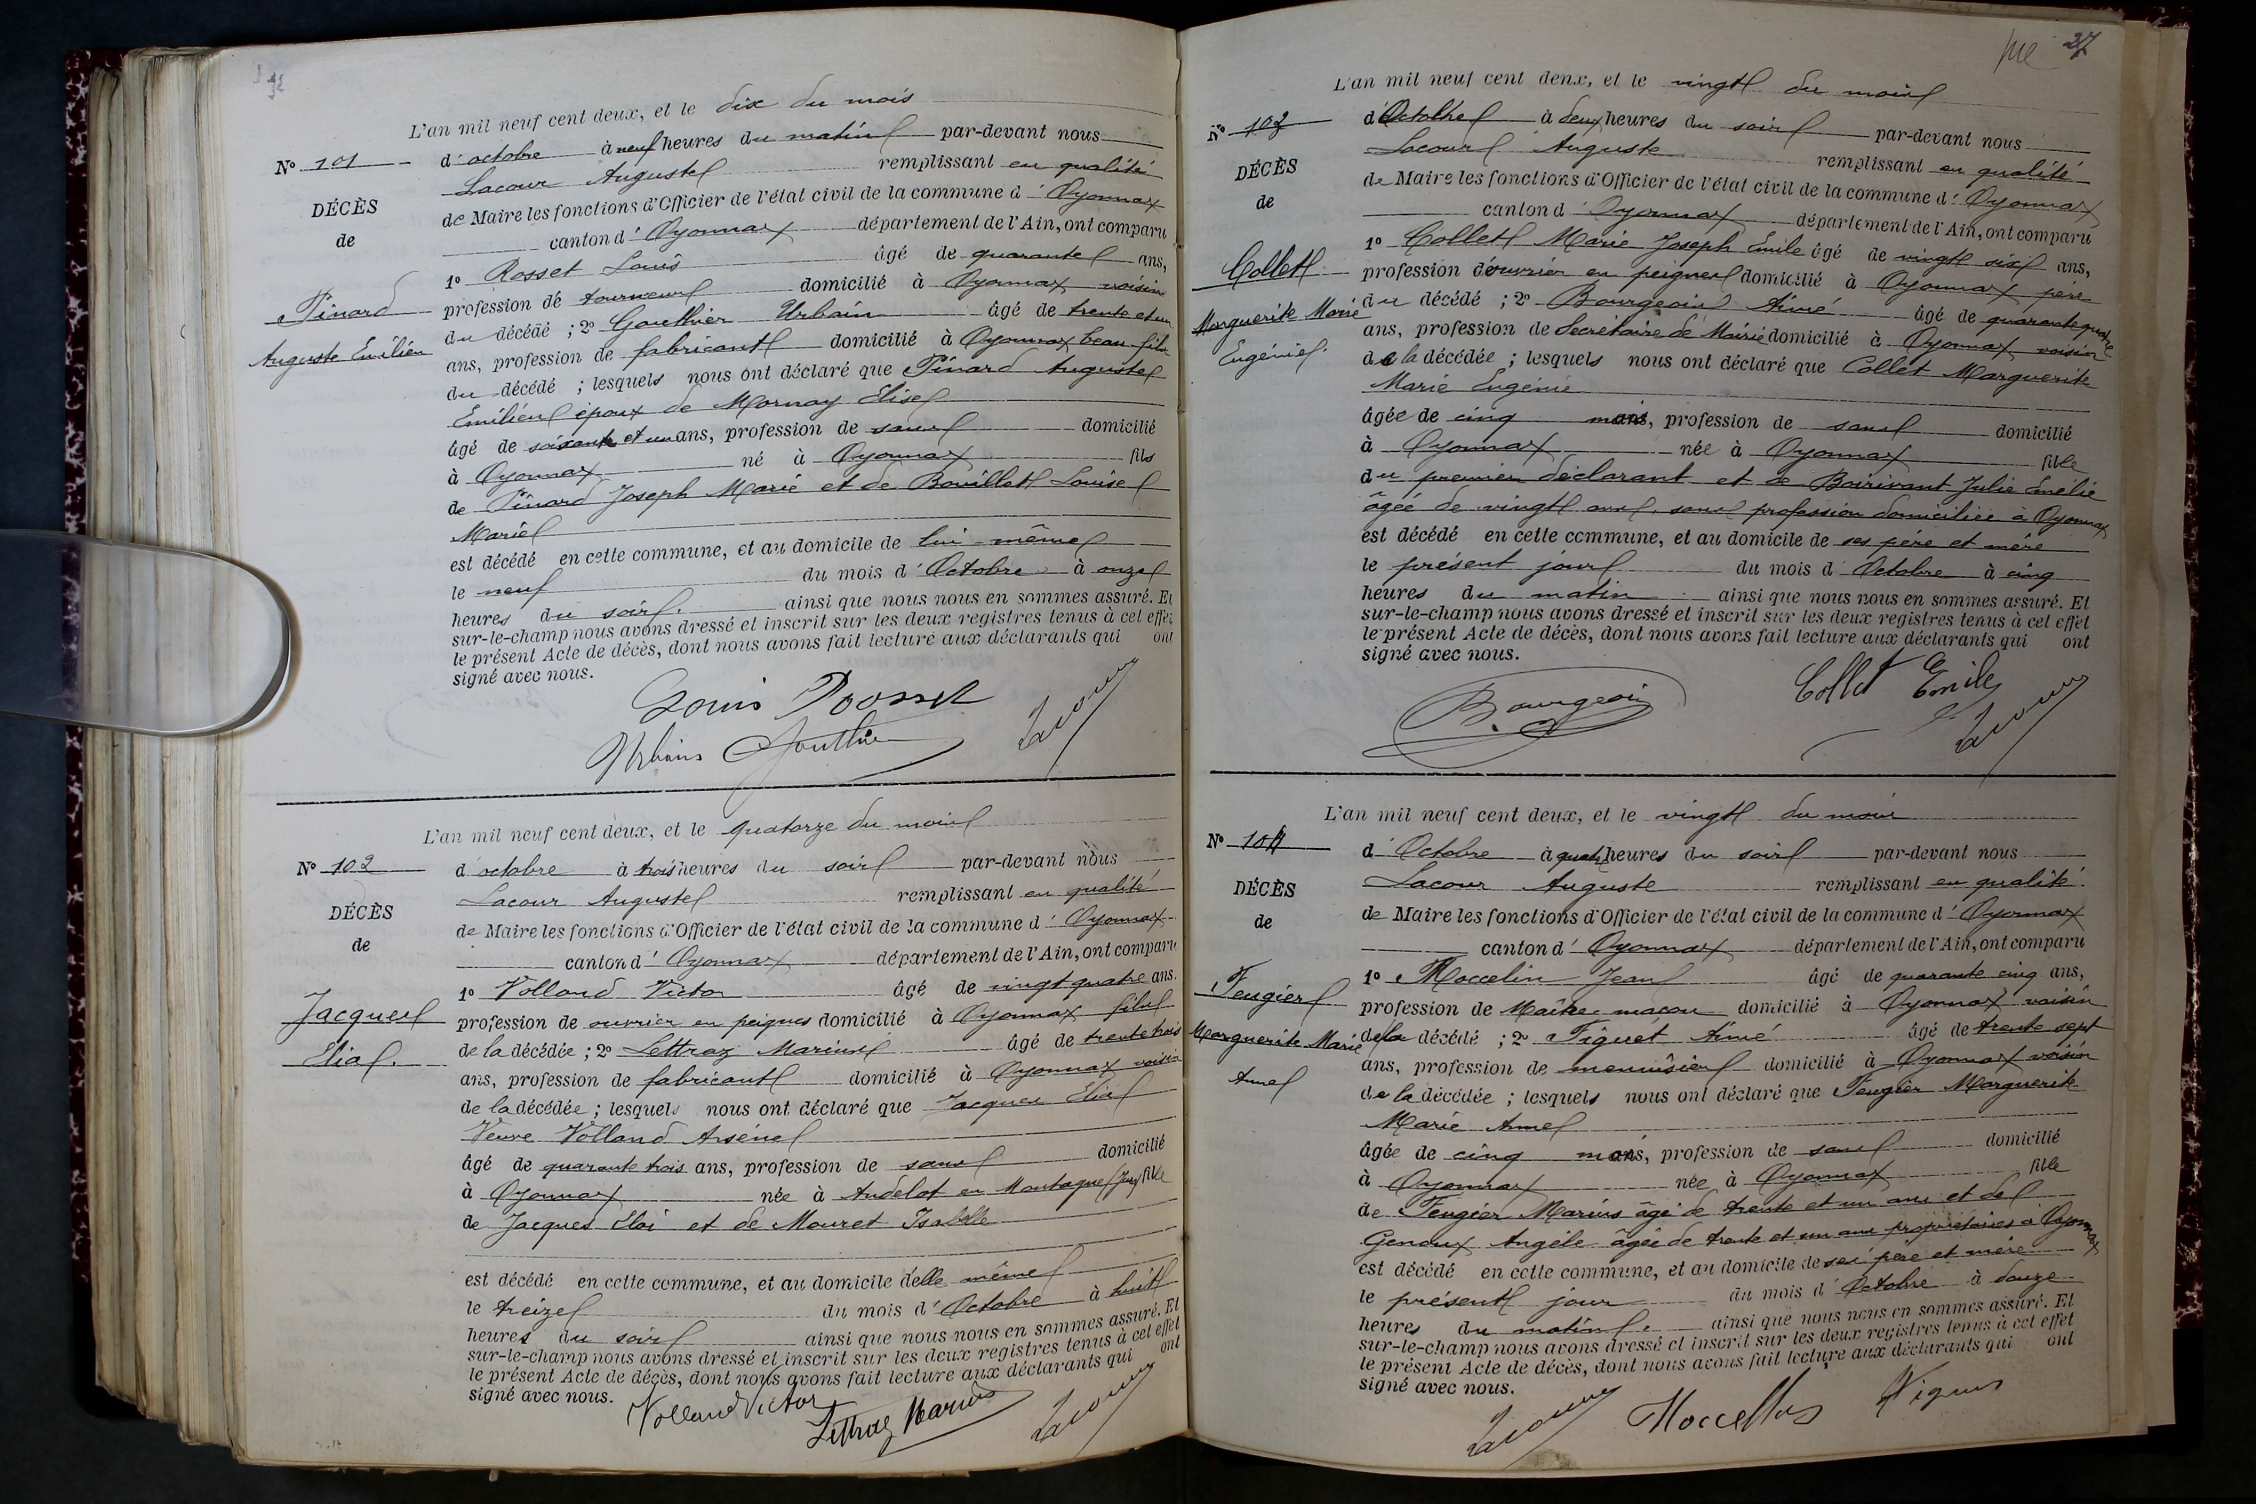 L'an mil neuf cent deux, et le dix du mois
N° 101
d'octobre à neuf heures du matin par-devant nous
Lacour Auguste remplissant en qualité
DÉCÈS
de Maire les fonctions d'Officier de l'état civil de la commune d'Oyonnax
de
canton d'Oyonnax département de l'Ain, ont comparu
1° Rosset Louis âgé de quarante ans,
Pinard
Auguste Emilien
profession de tourneur domicilié à Oyonnax voisin
du décédé ; 2° Gauthier Urbain âgé de trente et un
ans, profession de fabricant domicilié à Oyonnax beau-fils
du décédé ; lesquels nous ont déclaré que Pinard Auguste
Emilien époux de Mornay Elise
âgé de soixante et un ans, profession de sans domicilié
à Oyonnax né à Oyonnax fils
de Pinard Joseph Marie et de Bouillet Louise
Marie
est décédé en cette commune, et au domicile de lui-même
le neuf du mois d'Octobre à onze
heures du soir. ainsi que nous nous en sommes assuré. Et
sur-le-champ nous avons dressé et inscrit sur les deux registres tenus à cet effet
le présent Acte de décès, dont nous avons fait lecture aux déclarants qui ont
signé avec nous.
Louis Rosset
Urbain Gauthier
Lacour
L'an mil neuf cent deux, et le quatorze du mois
N° 102
d'octobre à trois heures du soir par-devant nous
Lacour Auguste remplissant en qualité
DÉCÈS
de Maire les fonctions d'Officier de l'état civil de la commune d'Oyonnax
de
canton d'Oyonnax département de l'Ain, ont comparu
1° Volland Victor âgé de vingt quatre ans.
Jacques
Elia.
profession de ouvrier en peignes domicilié à Oyonnax fils
de la décédée ; 2° Lettraz Marius âgé de trente trois
ans, profession de fabricant domicilié à Oyonnax voisin
de la décédée ; lesquels nous ont déclaré que Jacques Elia
Veuve Volland Arsène
âgé de quarante trois ans, profession de sans domicilié
à Oyonnax née à Andelot en Montagne (Jura) fille
de Jacques Eloi et de Mouret Isabelle
est décédé en cette commune, et au domicile d'elle même
le treize du mois d'Octobre à huit
heures du soir ainsi que nous nous en sommes assuré. Et
sur-le-champ nous avons dressé et inscrit sur les deux registres tenus à cet effet
le présent Acte de décès, dont nous avons fait lecture aux déclarants qui ont
signé avec nous.
Volland Victor
Lettraz Marius
Lacour
27
L'an mil neuf cent deux, et le vingt du mois
N° 103
d'Octobre à deux heures du soir par-devant nous
Lacour Auguste remplissant en qualité
DÉCÈS
de Maire les fonctions d'Officier de l'état civil de la commune d'Oyonnax
de
canton d'Oyonnax département de l'Ain, ont comparu
1° Collet Marie Joseph Emile âgé de vingt six ans,
Collet
Marguerite Marie
Eugénie.
profession d'ouvrier en peignes domicilié à Oyonnax père
du décédé ; 2° Bourgeois Aimé âgé de quarante quatre
ans, profession de Secrétaire de Mairie domicilié à Oyonnax voisin
de la décédée ; lesquels nous ont déclaré que Collet Marguerite
Marie Eugénie
âgée de cinq mois, profession de sans domicilié
à Oyonnax née à Oyonnax fille
du premier déclarant et de Boirivant Julie Emélie
âgée de vingt ans, sans profession domiciliée à Oyonnax
est décédé en cette commune, et au domicile de ses père et mère
le présent jour du mois d'Octobre à cinq
heures du matin ainsi que nous nous en sommes assuré. Et
sur-le-champ nous avons dressé et inscrit sur les deux registres tenus à cet effet
le présent Acte de décès, dont nous avons fait lecture aux déclarants qui ont
signé avec nous.
Bourgeois
Collet Emile
Lacour
L'an mil neuf cent deux, et le vingt du mois
N° 104
d'Octobre à quatre heures du soir par-devant nous
Lacour Auguste remplissant en qualité
DÉCÈS
de Maire les fonctions d'Officier de l'état civil de la commune d'Oyonnax
de
canton d'Oyonnax département de l'Ain, ont comparu
1° Moccelin Jean âgé de quarante cinq ans,
Feugier
Marguerite Marie
Anne
profession de Maître-maçon domicilié à Oyonnax voisin
de la décédé ; 2° Figuet Aimé âgé de trente sept
ans, profession de menuisier domicilié à Oyonnax voisin
de la décédée ; lesquels nous ont déclaré que Feugier Marguerite
Marie Anne
âgée de cinq mois, profession de sans domicilié
à Oyonnax née à Oyonnax fille
de Feugier Marius âgé de trente et un ans et de
Genoux Angèle âgée de trente et un ans propriétaires à Oyonnax
est décédé en cette commune, et au domicile de ses père et mère
le présent jour du mois d'Octobre à douze
heures du matin. ainsi que nous nous en sommes assuré. Et
sur-le-champ nous avons dressé et inscrit sur les deux registres tenus à cet effet
le présent Acte de décès, dont nous avons fait lecture aux déclarants qui ont
signé avec nous.
Lacour